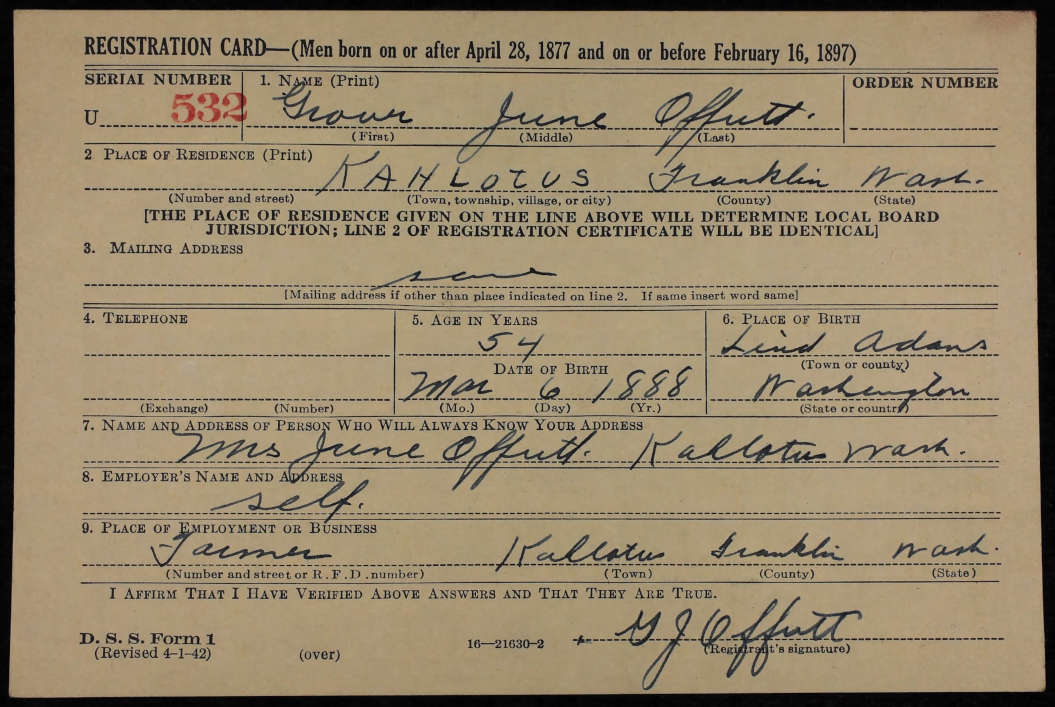 REGISTRATION CARD—(Men born on or after April 28, 1877 and on or before February 16, 1897)
SERIAL NUMBER 1. NAME (Print) ORDER NUMBER
U 532 Grover June Offutt.
(First) (Middle) (Last)
2 PLACE OF RESIDENCE (Print)
KAHLOTUS Franklin Wash.
(Number and street) (Town, township, village, or city) (County) (State)
[THE PLACE OF RESIDENCE GIVEN ON THE LINE ABOVE WILL DETERMINE LOCAL BOARD
JURISDICTION; LINE 2 OF REGISTRATION CERTIFICATE WILL BE IDENTICAL]
3. MAILING ADDRESS
same
[Mailing address if other than place indicated on line 2. If same insert word same]
4. TELEPHONE 5. AGE IN YEARS 6. PLACE OF BIRTH
54 Lind Adams
DATE OF BIRTH (Town or county)
Mar 6 1888 Washington
(Exchange) (Number) (Mo.) (Day) (Yr.) (State or country)
7. NAME AND ADDRESS OF PERSON WHO WILL ALWAYS KNOW YOUR ADDRESS
Mrs June Offutt. Kallotus Wash.
8. EMPLOYER'S NAME AND ADDRESS
self.
9. PLACE OF EMPLOYMENT OR BUSINESS
Farmer Kallotus Franklin Wash.
(Number and street or R.F.D. number) (Town) (County) (State)
I AFFIRM THAT I HAVE VERIFIED ABOVE ANSWERS AND THAT THEY ARE TRUE.
G J Offutt
D. S. S. Form 1
(Revised 4-1-42) (over) 16—21630-2 (Registrant's signature)